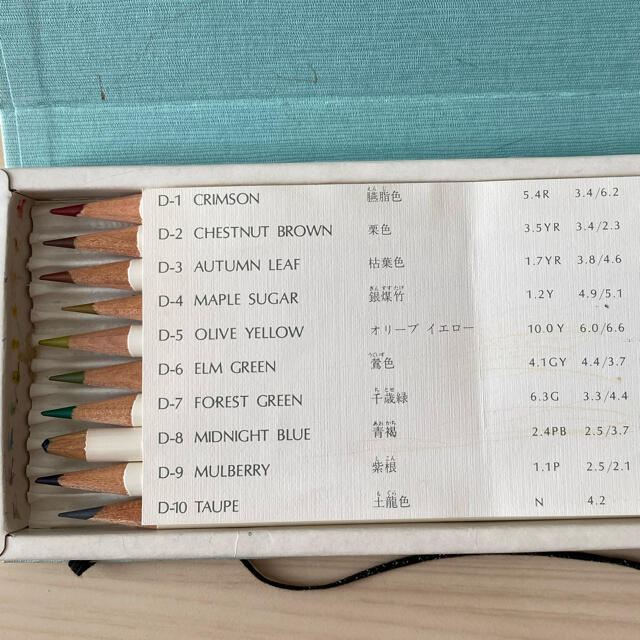 D-1 CRIMSON えんじ 臙脂色 5.4R 3.4/6.2
D-2 CHESTNUT BROWN 栗色 3.5YR 3.4/2.3
D-3 AUTUMN LEAF 枯葉色 1.7YR 3.8/4.6
D-4 MAPLE SUGAR ぎんすすたけ 銀煤竹 1.2Y 4.9/5.1
D-5 OLIVE YELLOW オリーブ イエロー 10.0Y 6.0/6.6
D-6 ELM GREEN うぐいす 鶯色 4.1GY 4.4/3.7
D-7 FOREST GREEN ちとせ 千歳緑 6.3G 3.3/4.4
D-8 MIDNIGHT BLUE あおかち 青褐 2.4PB 2.5/3.7
D-9 MULBERRY しこん 紫根 1.1P 2.5/2.1
D-10 TAUPE もぐら 土龍色 N 4.2